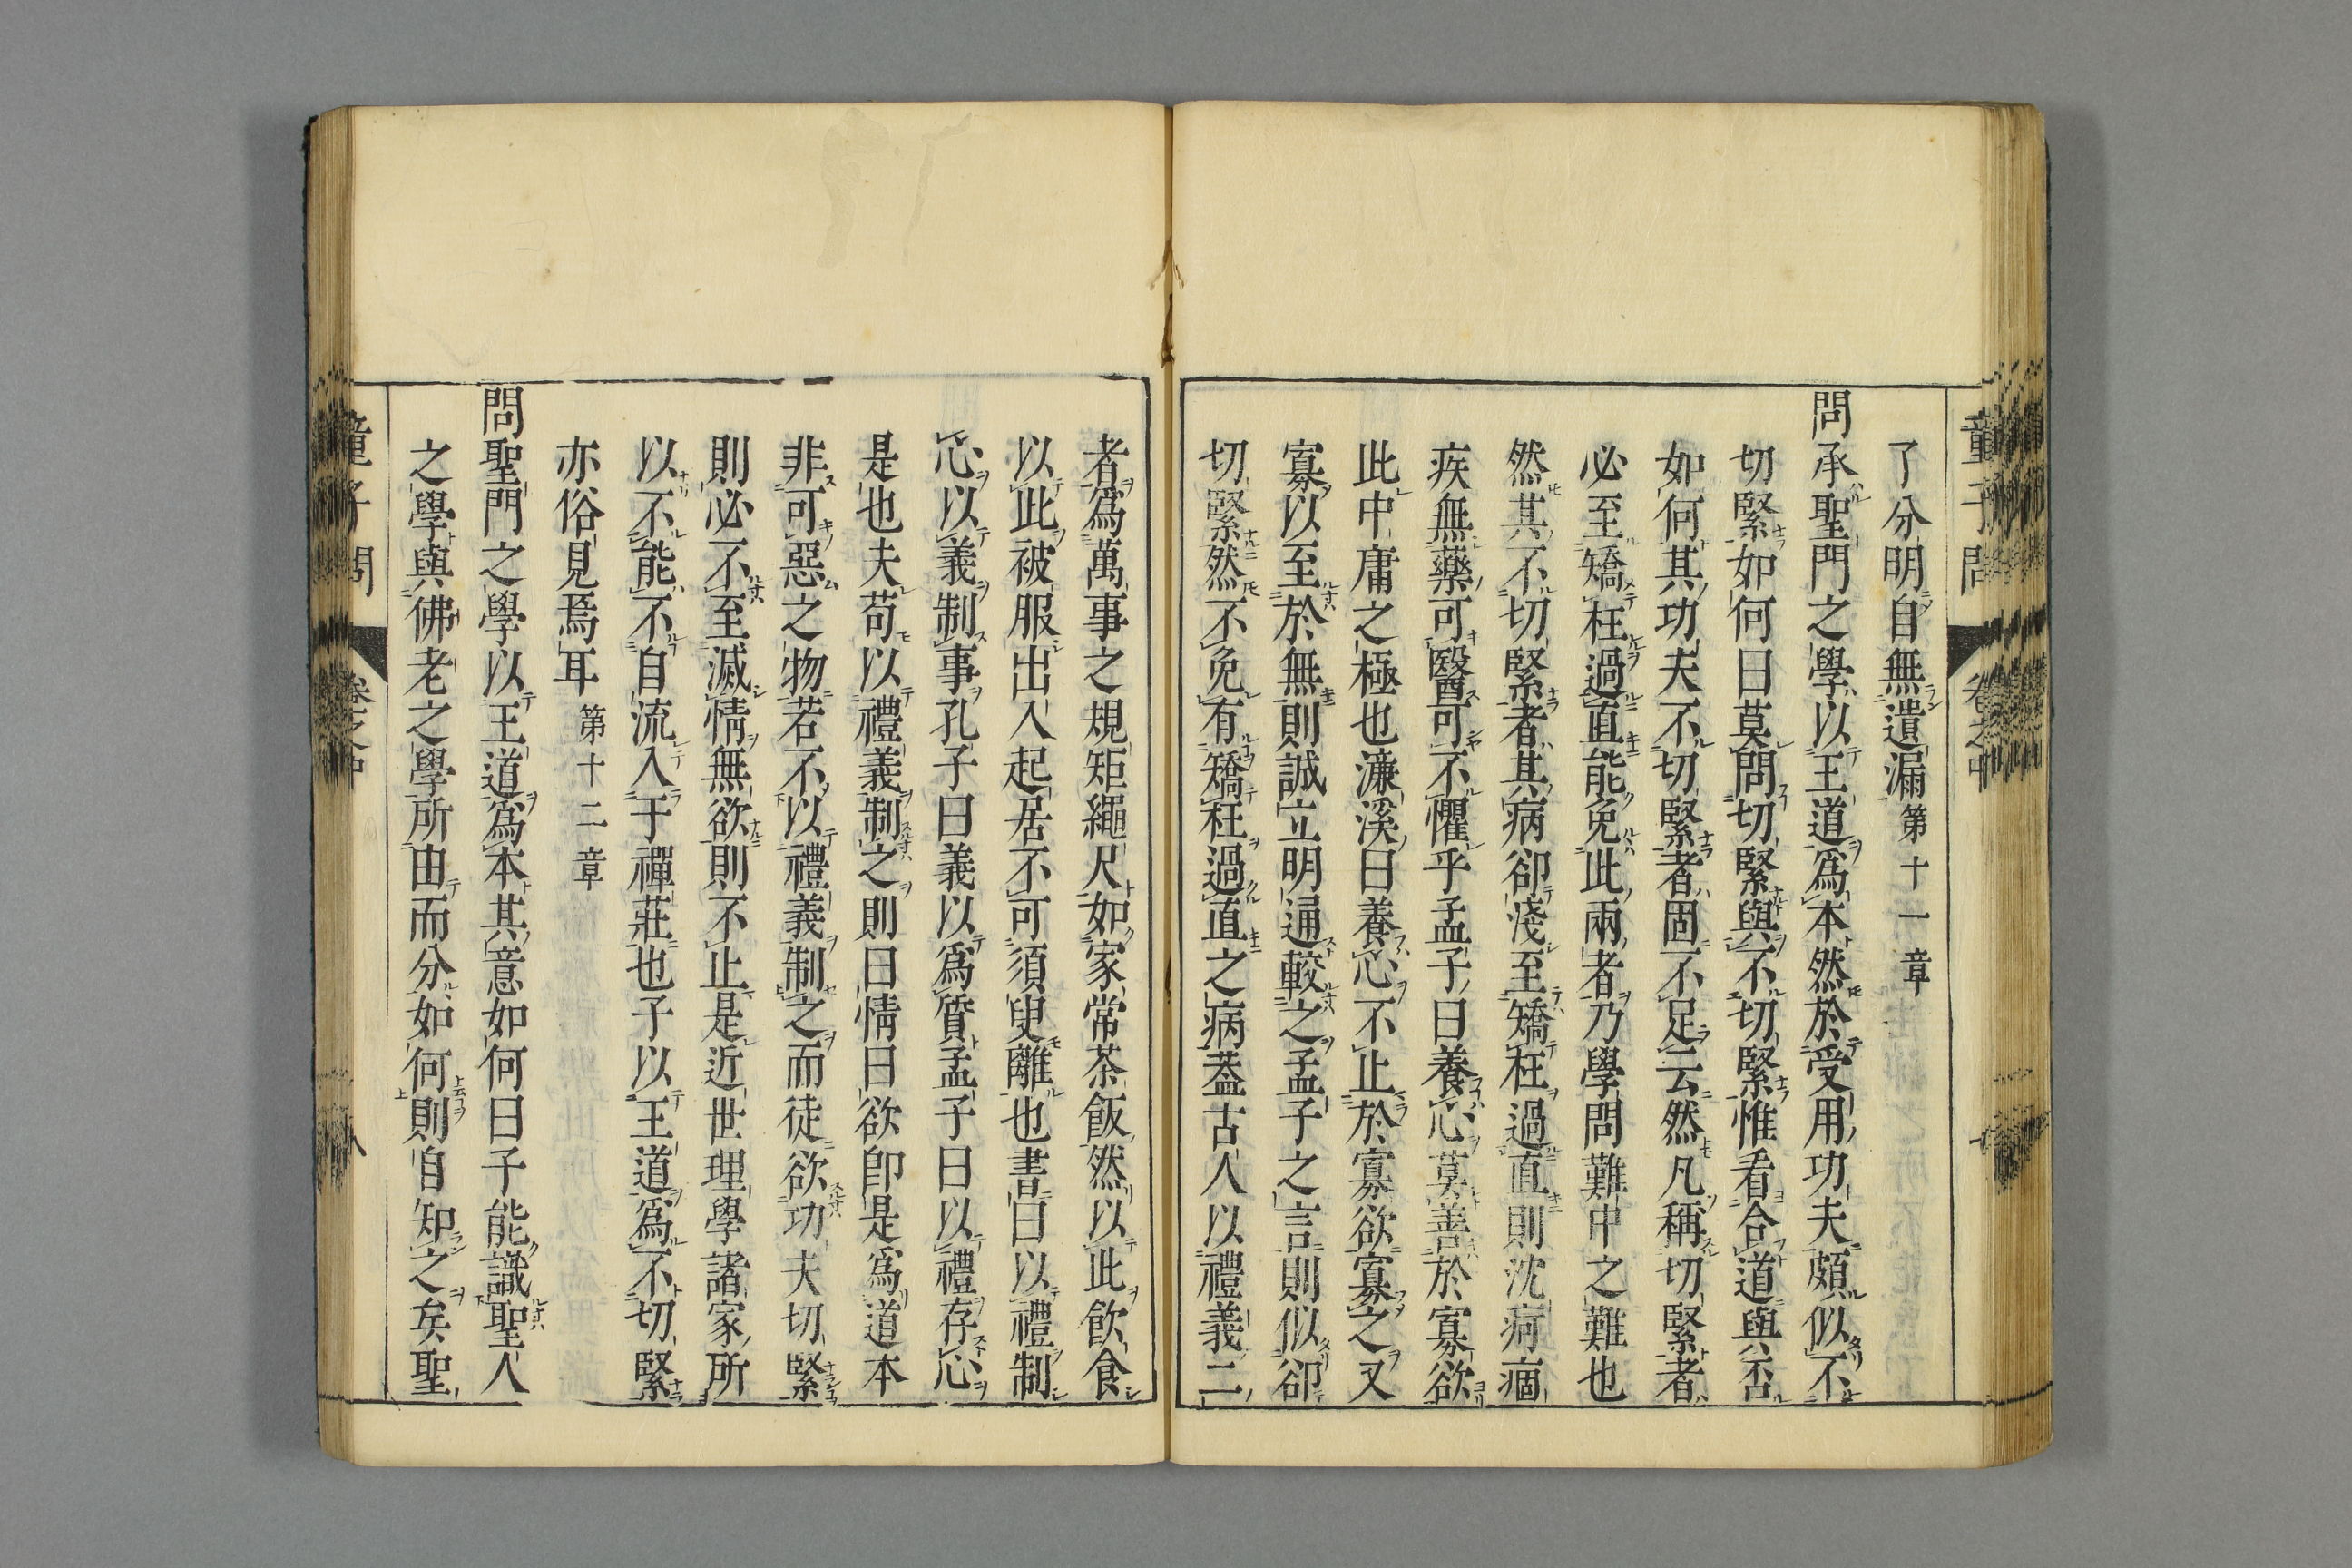 童子問 卷之中
了分明自無遺漏第十一章
問承聖門之學以王道爲本然於受用功夫頗似不
切緊如何曰莫問切緊與不切緊惟看合道與否
如何其功夫不切緊者固不足云然凡稱切緊者
必至矯枉過直能免此兩者乃學問難中之難也
然其不切緊者其病卻淺至矯枉過直則沈痾痼
疾無藥可醫可不懼乎孟子曰養心莫善於寡欲
此中庸之極也濂溪曰養心不止於寡欲寡之又
寡以至於無則誠立明通較之孟子之言則似卻
切緊然不免有矯枉過直之病蓋古人以禮義二
者爲萬事之規矩繩尺如家常茶飯然以此飮食
以此被服出入起居不可須臾離也書曰以禮制
心以義制事孔子曰義以爲質孟子曰以禮存心
是也夫苟以禮義制之則曰情曰欲卽是爲道本
非可惡之物若不以禮義制之而徒欲功夫切緊
則必不至滅情無欲則不止是近世理學諸家所
以不能不自流入于禪莊也子以王道爲不切緊
亦俗見焉耳 第十二章
問聖門之學以王道爲本其意如何曰子能識聖人
之學與佛老之學所由而分如何則自知之矣聖
童子問 卷之中 八